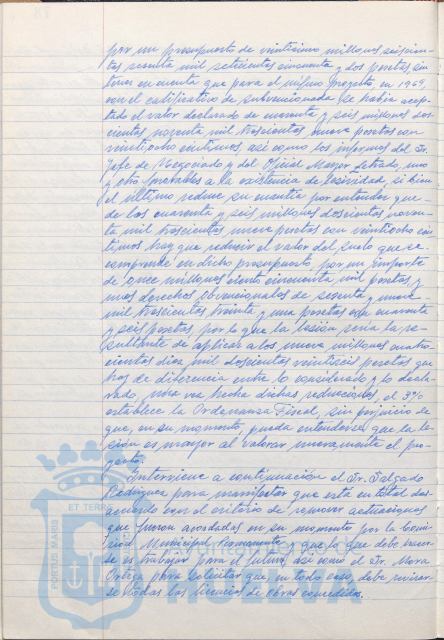 por un presupuesto de veintisiete millones seiscien-
tas sesenta mil setecientas cincuenta y dos pesetas, sin
tener en cuenta que para el mismo proyecto, en 1969,
con el calificativo de subvencionada se había acep-
tado el valor declarado de cuarenta y seis millones dos-
cientas noventa mil trescientas nueve pesetas con
veintiocho céntimos, así como los informes del Sr.
Jefe de Negociado y del Oficial Mayor Letrado, uno
y otro favorables a la existencia de lesividad, si bien
el último reduce su cuantía por entender que
de los cuarenta y seis millones doscientas noven-
ta mil trescientas nueve pesetas con veintiocho cén-
timos hay que reducir el valor del suelo que se
comprende en dicho presupuesto por un importe
de once millones ciento cincuenta mil pesetas y
unos derechos obvencionales de sesenta y nueve
mil trescientas treinta y una pesetas con cuarenta
y seis pesetas por lo que la lesión sería la re-
sultante de aplicar a los nueve millones cuatro-
cientas diez mil doscientas veintiseis pesetas que
hay de diferencia entre lo considerado y lo decla-
rado, una vez hecha dichas reducciones, el 3%
establece la Ordenanza Fiscal, sin perjuicio de
que, en su momento, pueda entenderse que la le-
sión es mayor al valorar nuevamente el pro-
yecto.
Interviene a continuación el Sr. Salgado
Rodríguez para manifestar que está en total des-
acuerdo con el criterio de remover actuaciones
que fueron acordadas en su momento por la Comi-
sión Municipal Permanente y que lo que debe hacer-
se es trabajar para el futuro, así como el Sr. Mora
Ortega para solicitar que, en todo caso, debe revisar-
se todas las licencias de obras concedidas.
PORTUS MARIS ET TERRAE
Ayuntamiento de
HUELVA